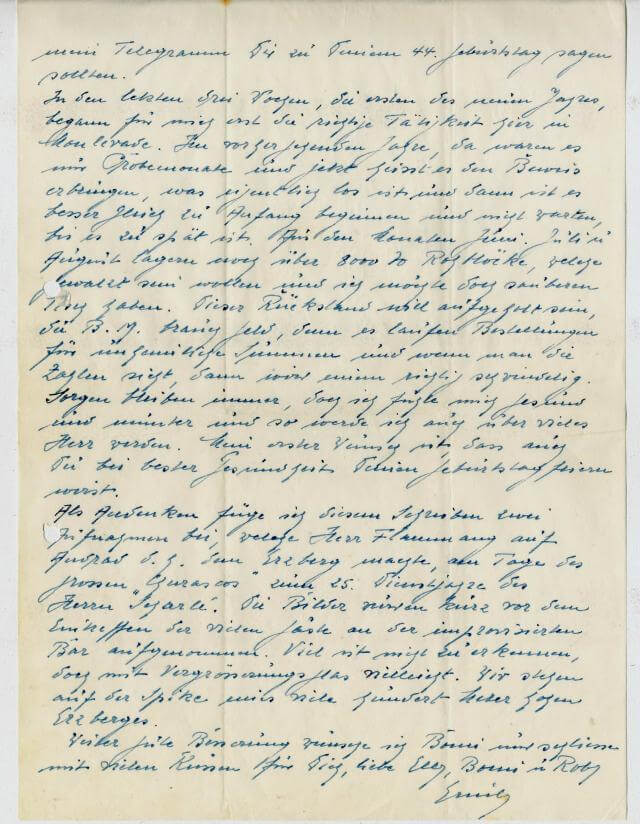 mein Telegramm Dir zu Deinem 44. Geburtstag sagen
sollten.
In den letzten drei Wochen, die ersten des neuen Jahres,
begann für mich erst die richtige Tätigkeit hier in
Monlevade. Im vorhergehenden Jahre, da waren es
nur Probemonate und jetzt heisst es den Beweis
erbringen, was eigentlich los ist und dann ist es
besser gleich zu Anfang beginnen und nicht warten,
bis es zu spät ist. Aus den Monaten Juni, Juli u
August lagern noch über 8000 To Rohblöcke, welche
gewalzt sein wollen und ich möchte doch sauberen
Tisch haben. Dieser Rückstand will aufgeholt sein,
die B. M. braucht Geld, denn es laufen Bestellungen
für ungemütliche Summen und wenn man die
Zahlen sieht, dann wird einem richtig schwindelig.
Sorgen bleiben immer, doch ich fühle mich gesund
und munter und so werde ich auch über vieles
Herr werden. Mein erster Wunsch ist, dass auch
Du bei bester Gesundheit Deinen Geburtstag feiern
wirst.
Als Andenken füge ich diesem Schreiben zwei
Aufnahmen bei, welche Herr Flammang auf
Andrad d. h. dem Erzberg machte, am Tage des
grossen "Churascos" zum 25. Dienstjahre des
Herrn . Die Bilder wurden kurz vor dem
Eintreffen der vielen Gäste an der improvisierten
Bar aufgenommen. Viel ist nicht zu erkennen,
doch mit Vergrösserungsglas vielleicht. Wir stehen
auf der Spitze eines viele hundert Meter hohen
Erzberges.
Weiter gute Besserung wünsche ich Bomi und schliesse
mit vielen Küssen für Dich, liebe Elly, Bomi u Roby
Emil